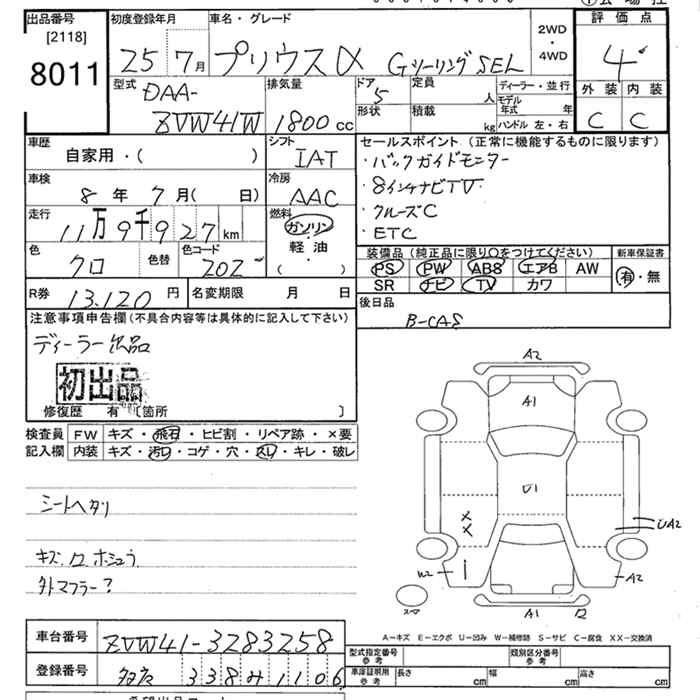 出品番号
[2118]
8011
初度登録年月
25年7月
車名・グレード
プリウスα Gツーリング SEL
2WD
・
4WD
評価点
4
外装 内装
C C
型式
DAA-
ZVW41W
排気量
1800cc
ドア
5
定員
人
形状
積載
kg
ディーラー・並行
モデル年式 年
ハンドル 左・右
車歴
自家用・( )
シフト
IAT
車検
8年7月( 日)
冷房
AAC
走行
11万9千927km
燃料
ガソリン
軽油
・
( )
色
クロ
色替
色コード
202
セールスポイント(正常に機能するものに限ります)
・バックガイドモニター
・8インチナビTV
・クルーズC
・ETC
装備品(純正品に限り○をつけてください)
PS PW ABS エアB AW
SR ナビ TV カワ
新車保証書
有・無
R券
13,120円
名変期限 月 日
後日品
B-CAS
注意事項申告欄(不具合内容等は具体的に記入して下さい)
ディーラー出品
初出品
修復歴 有 [箇所 ]
検査員記入欄
FW キズ・飛石・ヒビ割・リペア跡・×要
内装 キズ・汚れ・コゲ・穴・スレ・キレ・破レ
シートヘタリ
キズ、ワ ホシュウ
外マフラー?
A2
A1
U1
X
X
UA2
W2
A2
A1
スマ
A-キズ E-エクボ U-凹み W-補修跡 S-サビ C-腐食 XX-交換済
車台番号
ZVW41-3283258
登録番号
338み1106
型式指定番号
参考
類別区分番号
参考
車庫証明用
参考
長さ cm
幅 cm
高さ cm